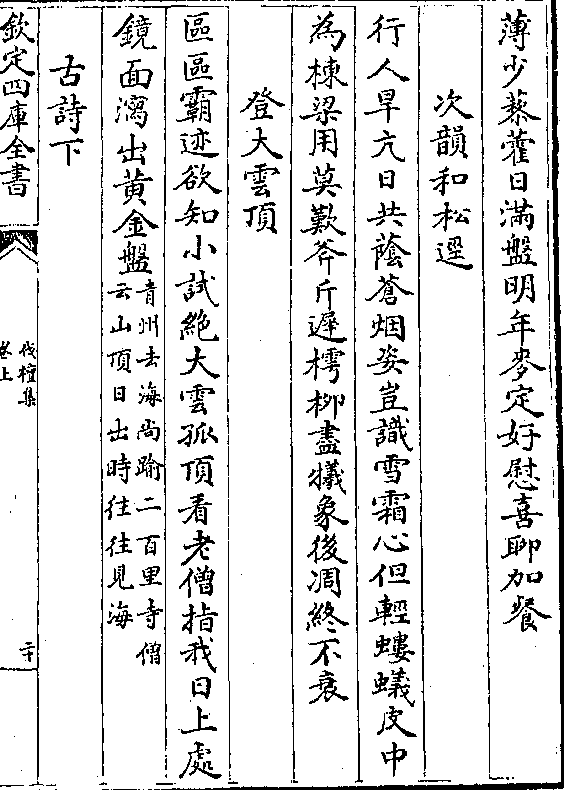 薄少藜藿日滿盤明年麥定好慰喜聊加餐
次韻和松逕
行人旱亢日共蔭蒼烟姿豈識雪霜心但輕螻蟻皮中
為棟梁用莫歎斧斤遲樗栁盡犧象後凋終不衰
登大雲頂
區區霸迹欲知小試絶大雲孤頂看老僧指我日上處
鏡面瀉出黄金盤青州去海尚踰二百里寺僧
云山頂日出時往往見海
古詩下
欽定四庫全書
伐檀集
卷上
二十